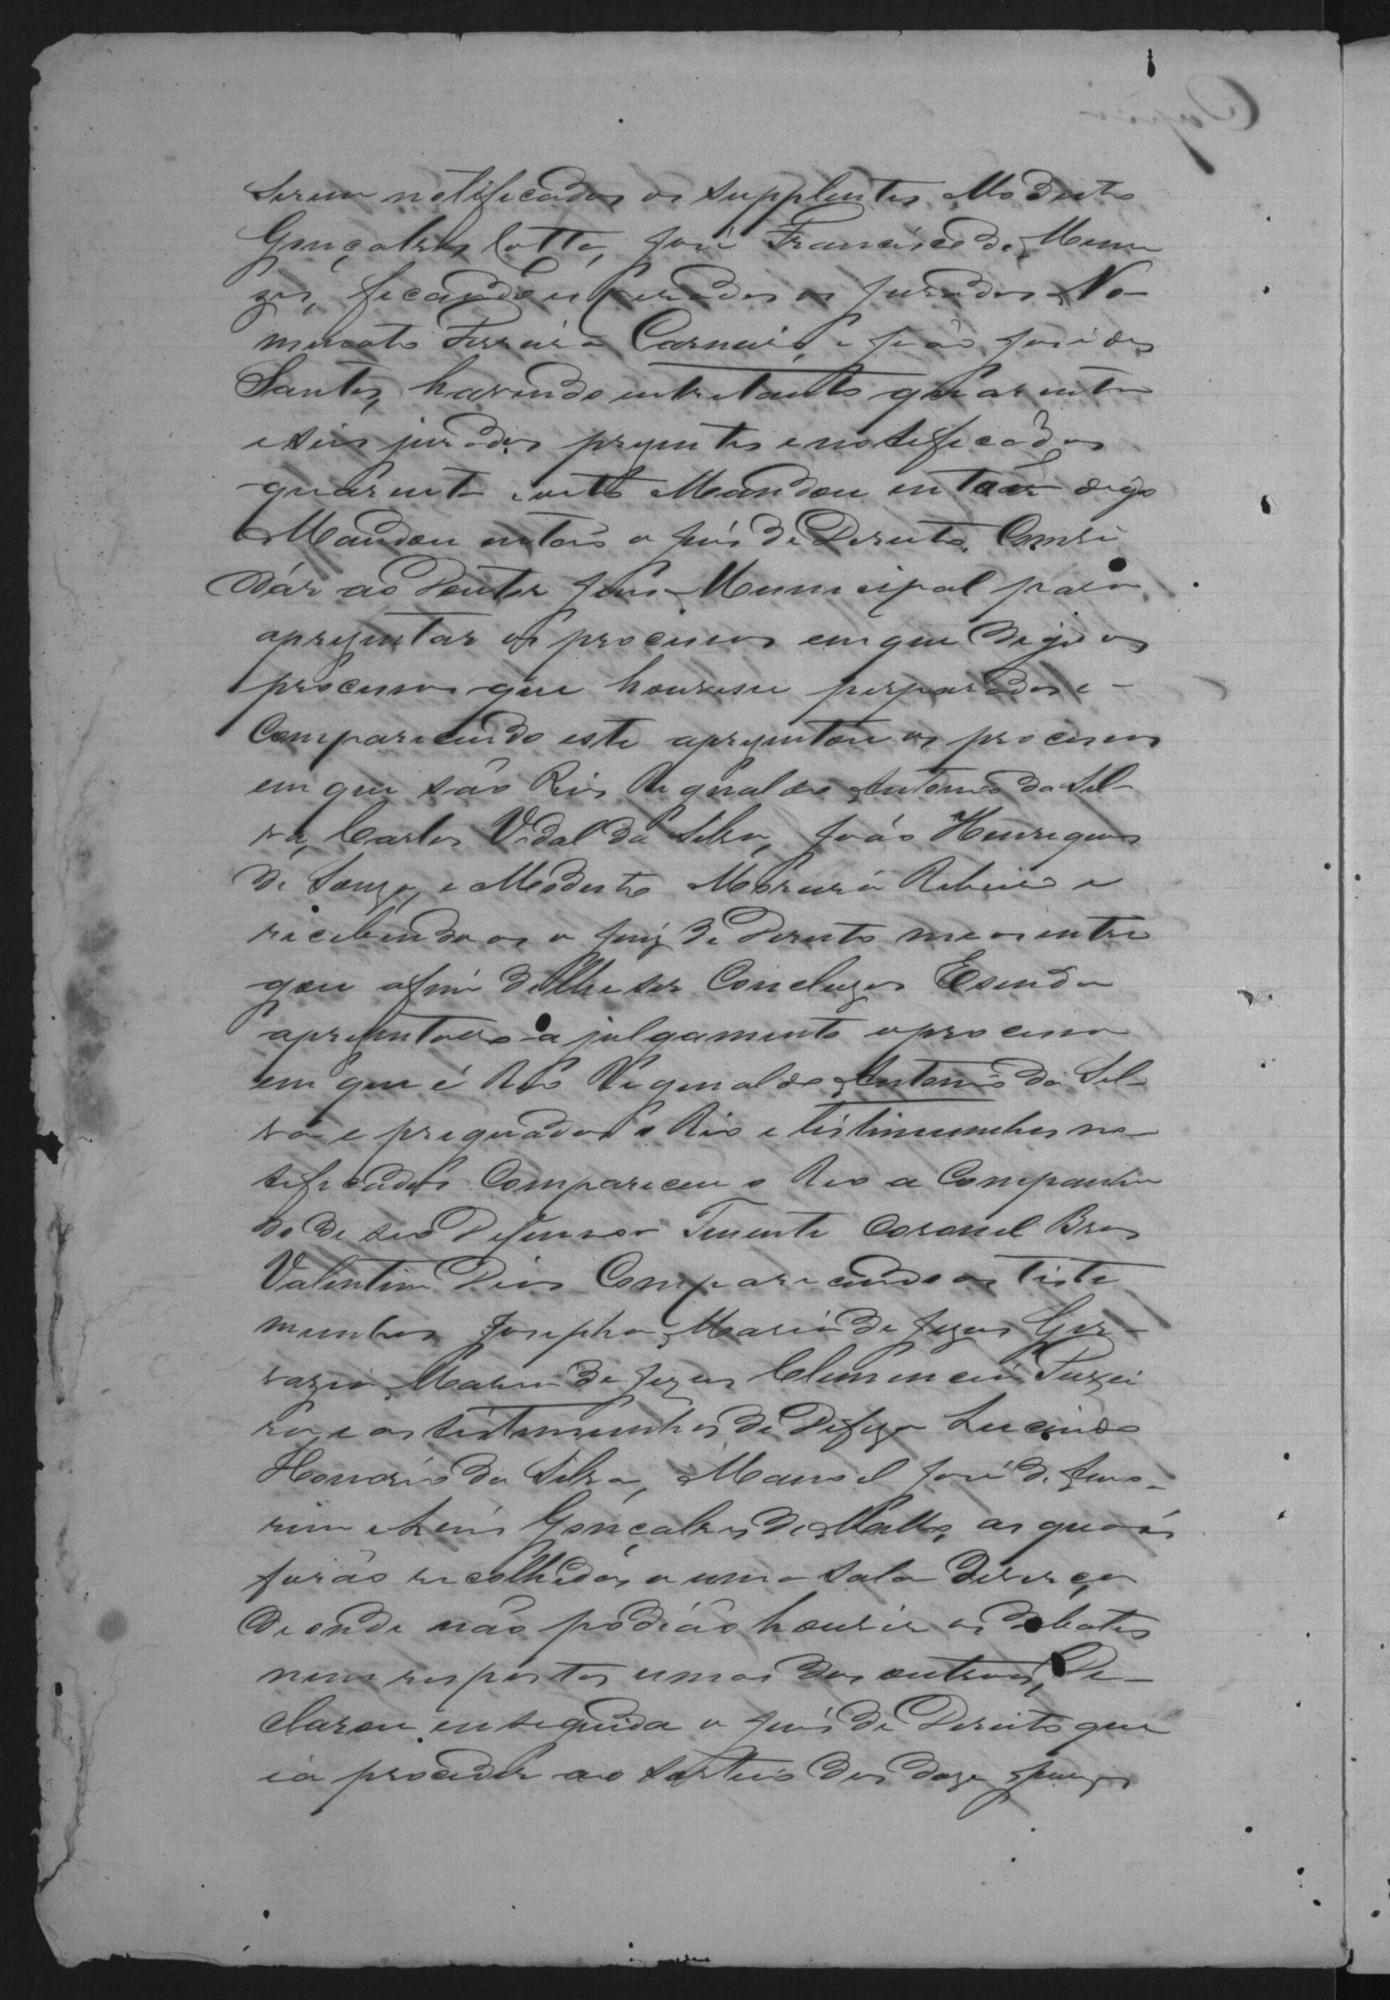 serem notificados os supplentes Modesto
Gonçalves Cotta, José Francisco de Mene
zes, ficando os jurados No-
Ferreira Carneiro, e João José dos
Santos, havendo entretanto quarenta
e seis jurados prezentes e notificados
quarenta e oito Mandou então digo
Mandou então o juis de Direito Convi
dár ao Doutor Juis Municipal para
aprezentar os procesos em que digo os
procesos que houvese perparados e-
Comparecendo este aprezentou os procesos
em que são Reos Reginaldo Antonio da Sil-
va, Carlos Vidal da Silva, João Henriques
de Souza, e Modesto Moreira Ribeiro e
recebendo os o Juiz de Direito me os entre
gou afim de lhe ser Concluzos Esendo
aprezentado a julgamento oproceso
em que é Reo Reginaldo Antonio da Sil-
va e pregoados o Reo e testimunhas no-
tificados Compareceu o Reo a Companha
do de seo Defensor Tenente Coronel Bras
Valentim Dias Comparecendo as teste
munhas Josepha Maria de Jezus Ger-
vazia Maria de Jezus Clemencia Perei
ra, e as testemunhas de Defeza Lucindo
Honorio da Silva, Manoel José de Amo-
rim e Luis Gonçalves de Mattos, as quaes
forão recolhidas a uma sala
de onde não podião houvir os debates
nem respostas umas das outras, De-
clarou em seguida o Juis de Direito que
ia proceder ao sorteio dos doze Juizes